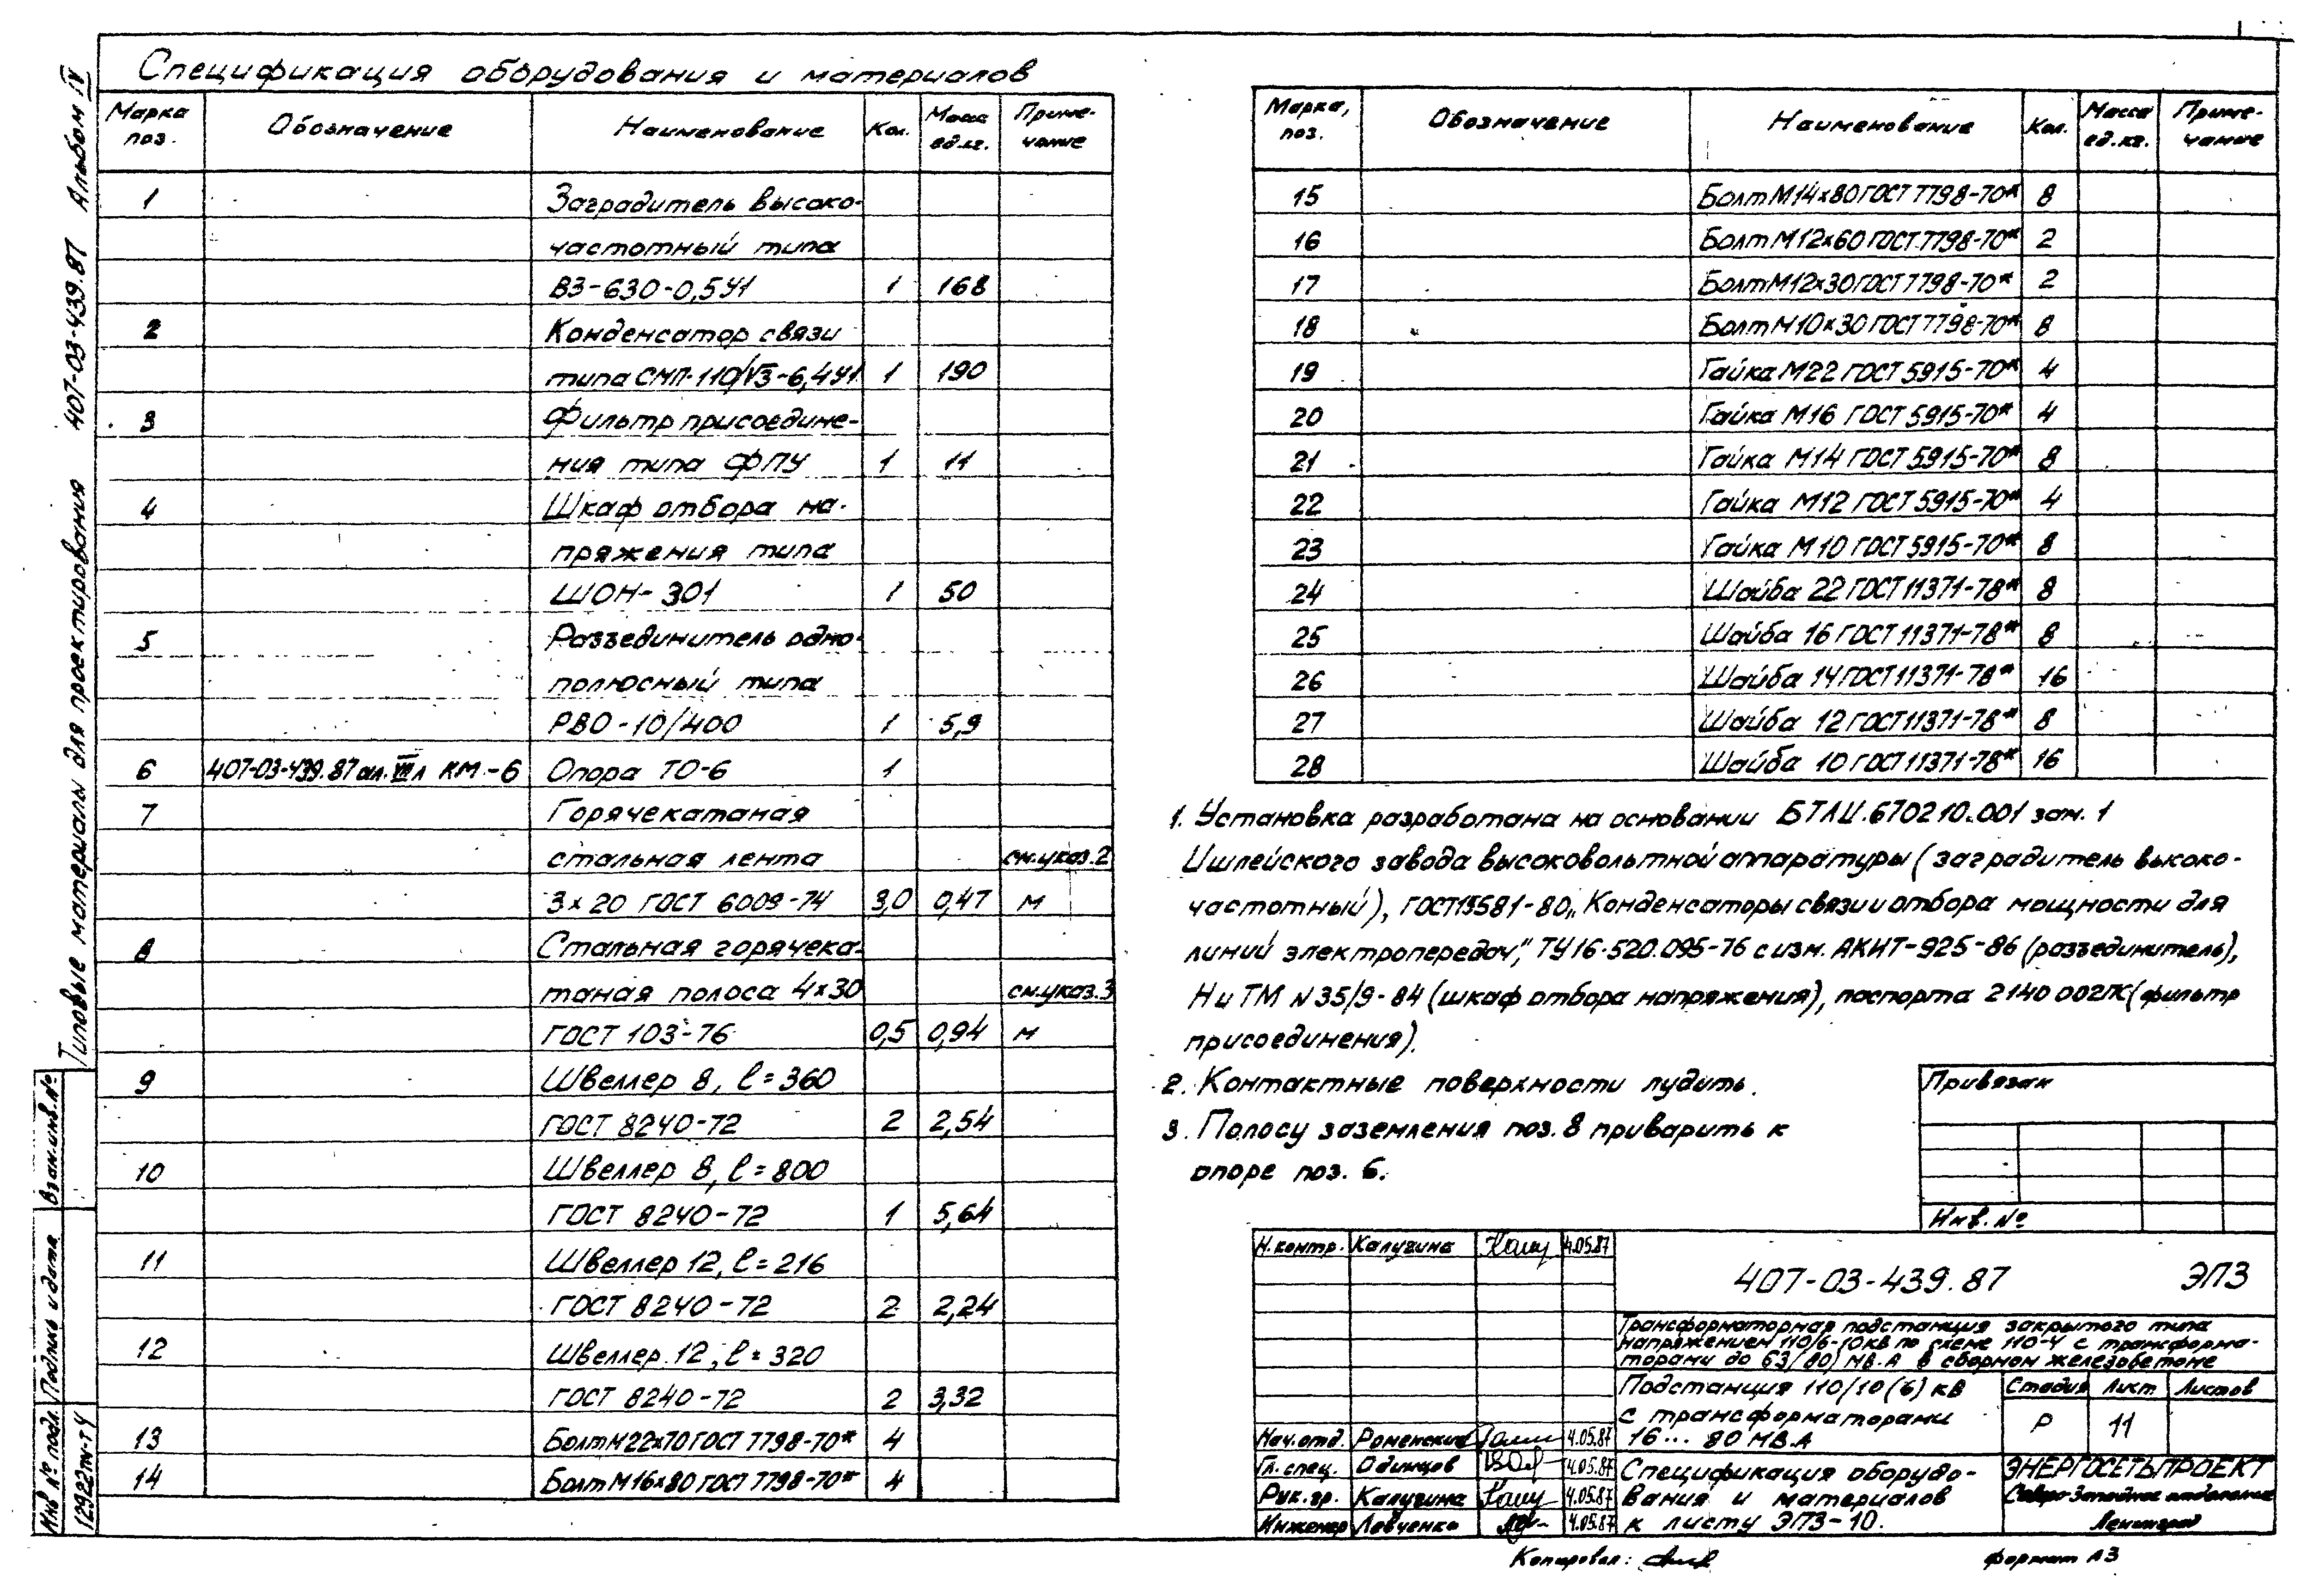 Спецификация оборудования и материалов
Марка поз. Обозначение Наименование Кол. Масса ед.кг. Приме-чание
1 Заградитель высоко-
частотный типа
ВЗ-630-0,5У1 1 168
2 Конденсатор связи
типа СМП-110/√3-6,4У1 1 190
3 Фильтр присоедине-
ния типа ФПУ 1 11
4 Шкаф отбора на-
пряжения типа
ШОН-301 1 50
5 Разъединитель одно-
полюсный типа
РВО-10/400 1 5,9
6 407-03-439.87 ал. VII л КМ.-6 Опора ТО-6 1
7 Горячекатаная
стальная лента см.указ.2
3x20 ГОСТ 6009-74 3,0 0,47 м
8 Стальная горячека-
таная полоса 4x30 см.указ.3
ГОСТ 103-76 0,5 0,94 м
9 Швеллер 8, ℓ=360
ГОСТ 8240-72 2 2,54
10 Швеллер 8, ℓ=800
ГОСТ 8240-72 1 5,64
11 Швеллер 12, ℓ=216
ГОСТ 8240-72 2 2,24
12 Швеллер 12, ℓ=320
ГОСТ 8240-72 2 3,32
13 Болт М22x70 ГОСТ 7798-70* 4
14 Болт М16x80 ГОСТ 7798-70* 4
Марка, поз. Обозначение Наименование Кол. Масса ед.кг. Приме-чание
15 Болт М14x80 ГОСТ 7798-70* 8
16 Болт М12x60 ГОСТ 7798-70* 2
17 Болт М12x30 ГОСТ 7798-70* 2
18 Болт М10x30 ГОСТ 7798-70* 8
19 Гайка М22 ГОСТ 5915-70* 4
20 Гайка М16 ГОСТ 5915-70* 4
21 Гайка М14 ГОСТ 5915-70* 8
22 Гайка М12 ГОСТ 5915-70* 4
23 Гайка М10 ГОСТ 5915-70* 8
24 Шайба 22 ГОСТ 11371-78* 8
25 Шайба 16 ГОСТ 11371-78* 8
26 Шайба 14 ГОСТ 11371-78* 16
27 Шайба 12 ГОСТ 11371-78* 8
28 Шайба 10 ГОСТ 11371-78* 16
1. Установка разработана на основании БТЛИ.670210.001 зам. 1
Ишлейского завода высоковольтной аппаратуры (заградитель высоко-
частотный), ГОСТ 15581-80 „Конденсаторы связи и отбора мощности для
линий электропередач", ТУ16-520.095-76 с изм. АКИТ-925-86 (разъединитель),
НиТМ N 35/9-84 (шкаф отбора напряжения), паспорта 2140 002ПС (фильтр
присоединения).
2. Контактные поверхности лудить.
3. Полосу заземления поз. 8 приварить к
опоре поз. 6.
Привязан
Инв. №
Н.контр. Калугина 4.05.87
407-03-439.87 ЭПЗ
Трансформаторная подстанция закрытого типа
напряжением 110/6-10кв по схеме 110-4 с трансформа-
торами до 63/80/ МВ.А в сборном железобетоне
Подстанция 110/10(6)кв
с трансформаторами
16...80 МВ.А
Стадия Лист Листов
Р 11
Нач.отд. Роменский 4.05.87
Гл.спец. Одинцов 4.05.87
Рук.гр. Калугина 4.05.87
Инженер Левченко 4.05.87
Спецификация оборудо-
вания и материалов
к листу ЭПЗ-10.
ЭНЕРГОСЕТЬПРОЕКТ
Северо-Западное отделение
Ленинград
Копировал: формат А3
Типовые материалы для проектирования 407-03-439.87 Альбом IV
Взам.инв.№
Подпись и дата
Инв № подл.
12922тм-т4